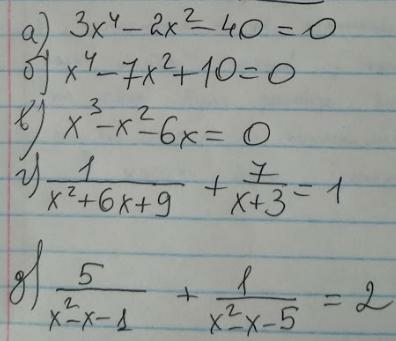 а) 3x⁴ - 2x² - 40 = 0
б) x⁴ - 7x² + 10 = 0
в) x³ - x² - 6x = 0
г) 1/(x² + 6x + 9) + 7/(x + 3) = 1
д) 5/(x² - x - 1) + 1/(x² - x - 5) = 2